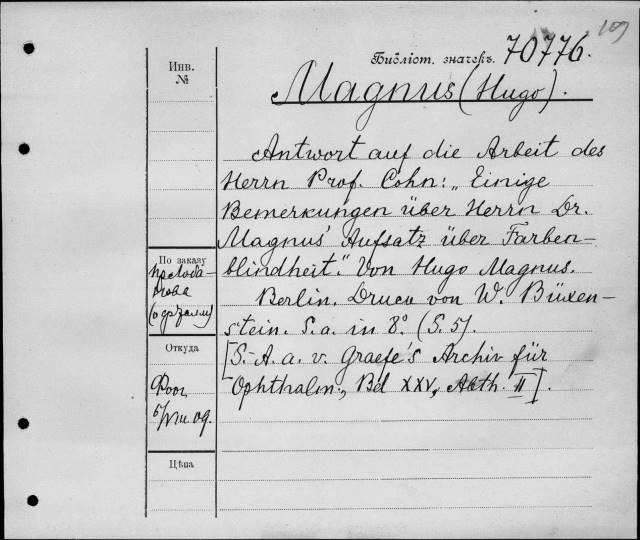 109
Библіот. значекъ. 70776.
Инв.
№
Magnus (Hugo).
Antwort auf die Arbeit des
Herrn Prof. Cohn: „Einige
Bemerkungen über Herrn Dr.
Magnus' Aufsatz über Farben-
blindheit." Von Hugo Magnus.
Berlin. Druck von W. Büxen-
stein. S.a. in 8º. (S. 5).
[S.-A. a. v. Graefe's Archiv für
Ophthalm., Bd XXV, Abth. II].
По заказу
Откуда
6/VIII 09.
Цѣна